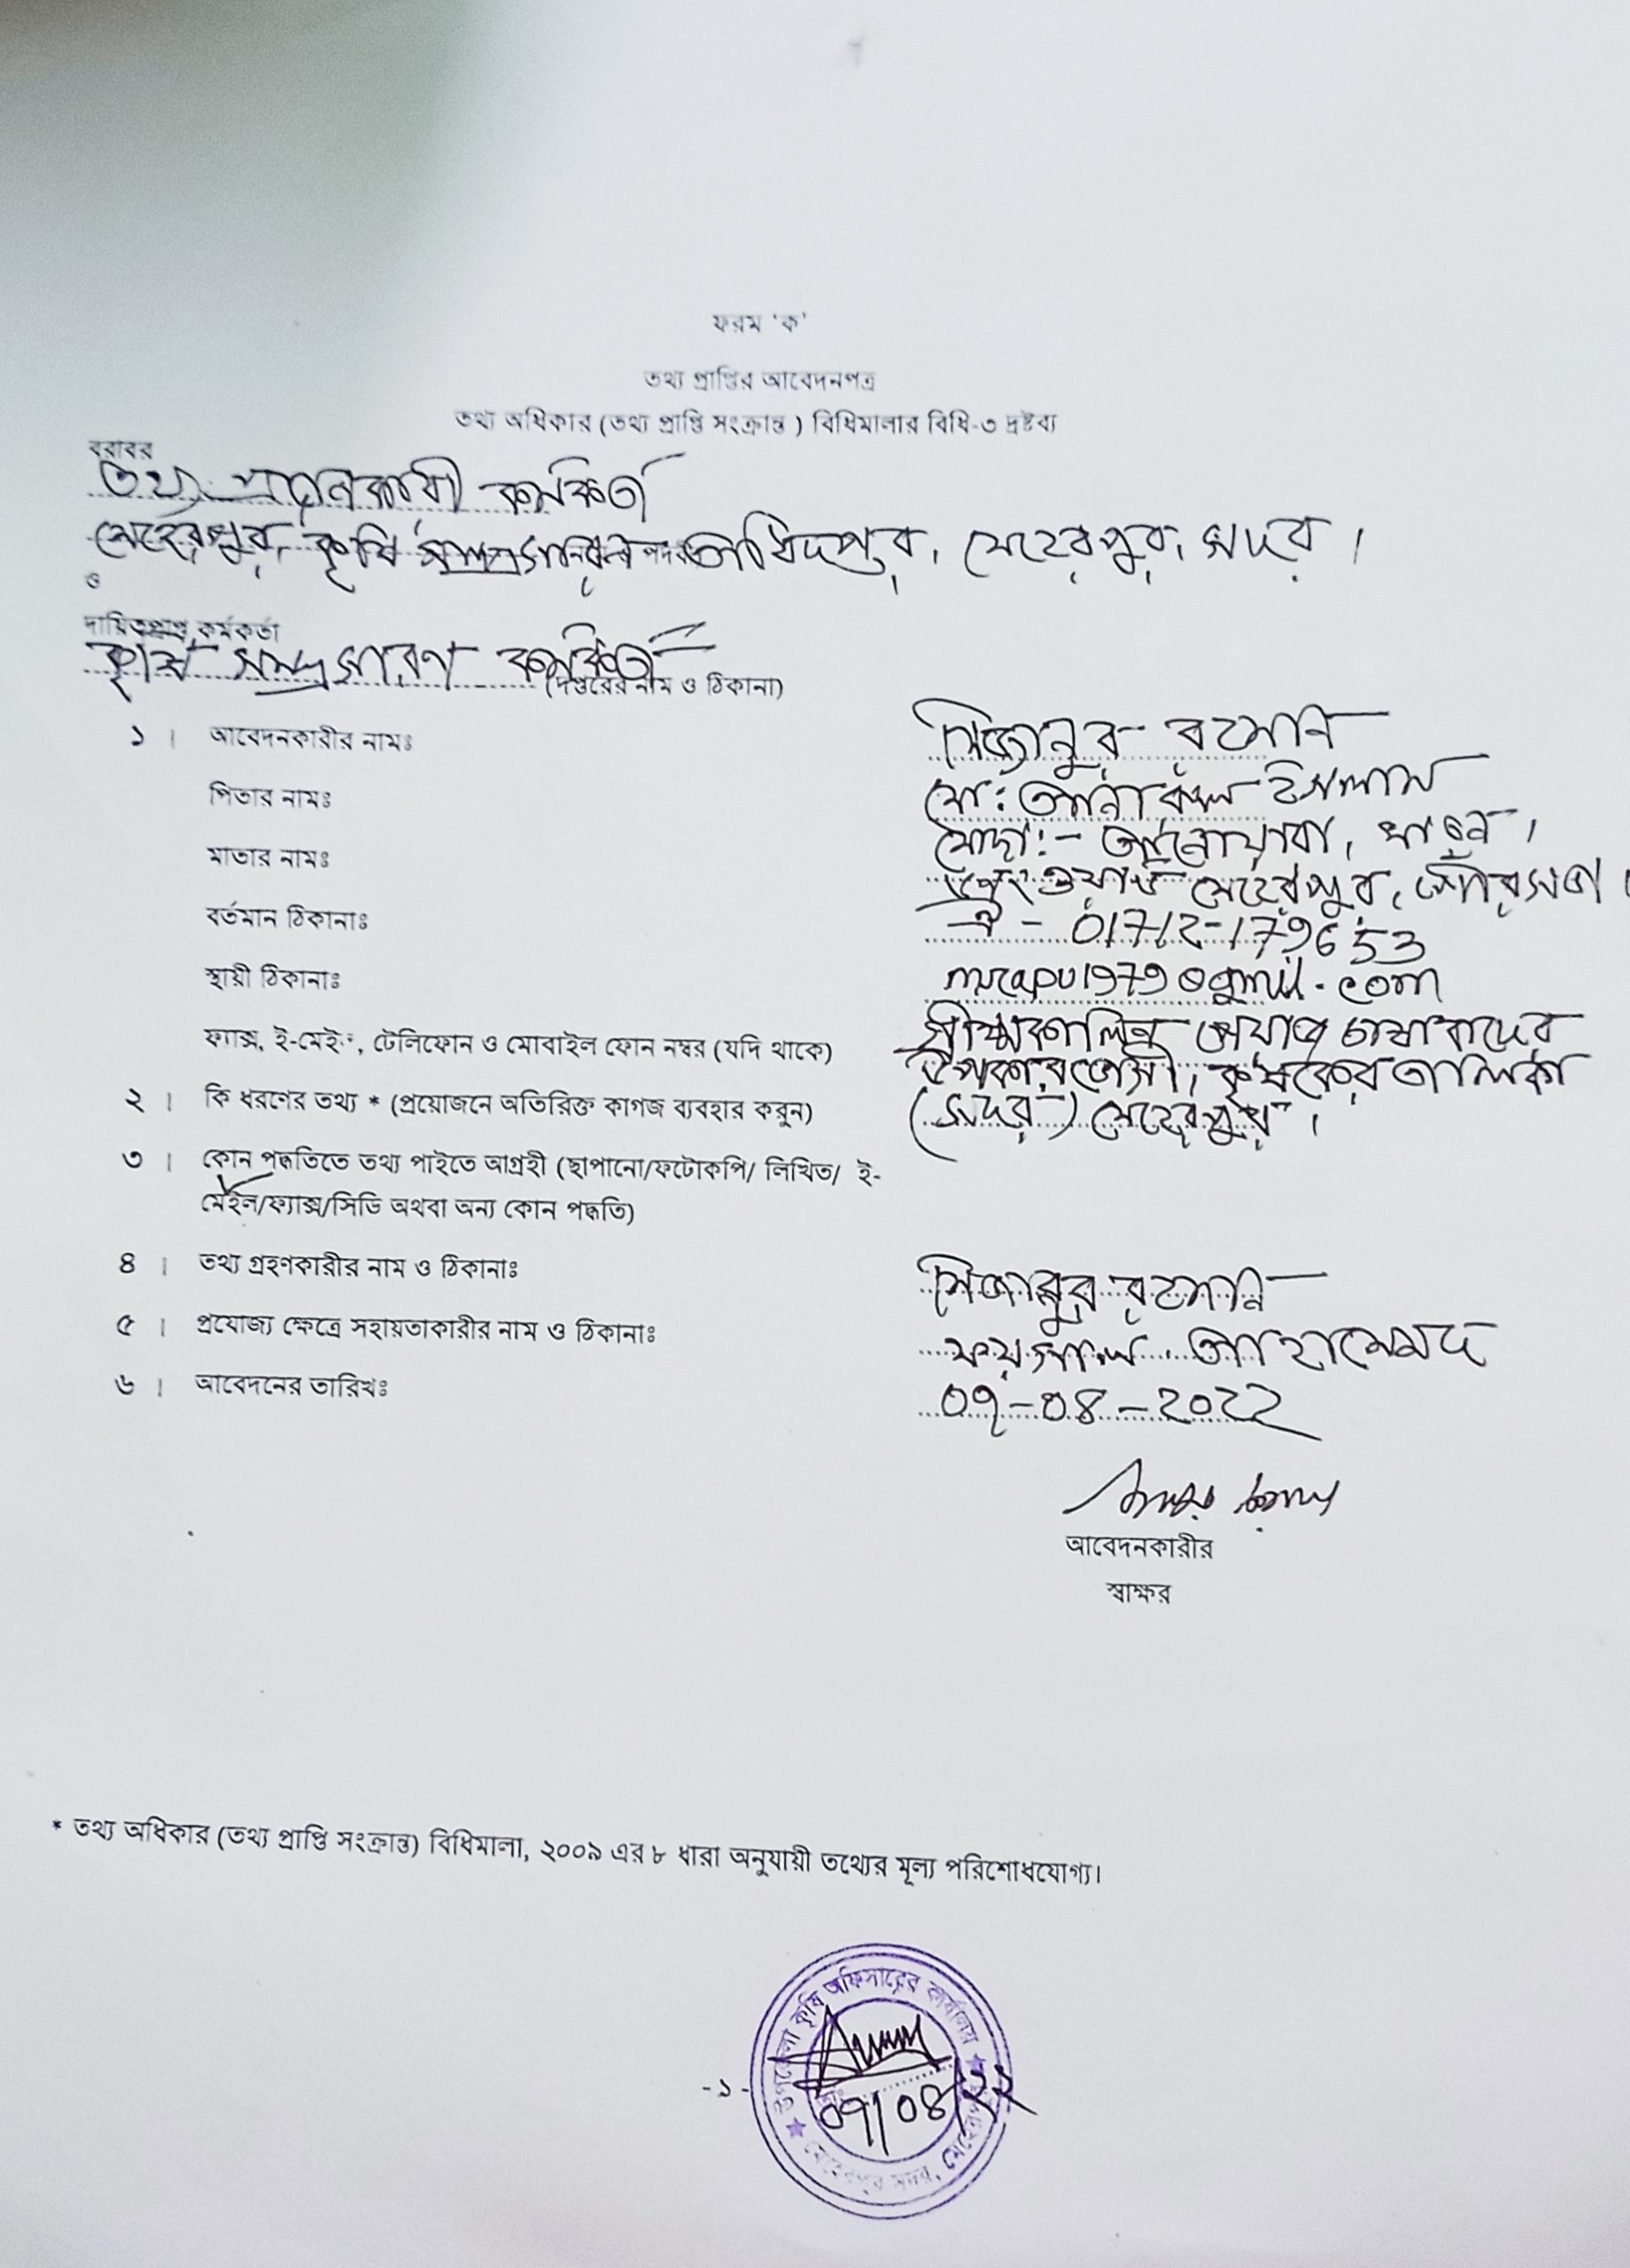 ফরম 'ক'
তথ্য প্রাপ্তির আবেদনপত্র
তথ্য অধিকার (তথ্য প্রাপ্তি সংক্রান্ত ) বিধিমালার বিধি-৩ দ্রষ্টব্য
বরাবর
তথ্য প্রদানকারী কর্মকর্তা
মেহেরপুর, কৃষি সম্প্রসারন অধিদপ্তর, মেহেরপুর, সদর।
ও
দায়িত্বপ্রাপ্ত কর্মকর্তা
কৃষি সম্প্রসারণ কর্মকর্তা
(দপ্তরের নাম ও ঠিকানা)
১ । আবেদনকারীর নামঃ মিজানুর রহমান
পিতার নামঃ মো: ইসলাম
মাতার নামঃ মোছা:- আনোয়ারা, খাতুন,
বর্তমান ঠিকানাঃ ওয়ার্ড মেহেরপুর, পৌরসভা।
স্থায়ী ঠিকানাঃ ঐ - 01712-179653
ফ্যাক্স, ই-মেইল, টেলিফোন ও মোবাইল ফোন নম্বর (যদি থাকে)
২ । কি ধরণের তথ্য * (প্রয়োজনে অতিরিক্ত কাগজ ব্যবহার করুন) গ্রীষ্মকালিন পেয়াজ চাষাবাদের
উপকারভোগী, কৃষকের তালিকা
(সদর) মেহেরপুর।
৩ । কোন পদ্ধতিতে তথ্য পাইতে আগ্রহী (ছাপানো/ফটোকপি/ লিখিত/ ই-
মেইল/ফ্যাক্স/সিডি অথবা অন্য কোন পদ্ধতি)
৪ । তথ্য গ্রহণকারীর নাম ও ঠিকানাঃ মিজানুর রহমান
৫ । প্রযোজ্য ক্ষেত্রে সহায়তাকারীর নাম ও ঠিকানাঃ ফয়সাল আহামেমদ
৬ । আবেদনের তারিখঃ 0৭-0৪-2022
আবেদনকারীর
স্বাক্ষর
* তথ্য অধিকার (তথ্য প্রাপ্তি সংক্রান্ত) বিধিমালা, ২০০৯ এর ৮ ধারা অনুযায়ী তথ্যের মূল্য পরিশোধযোগ্য।
উপজেলা কৃষি অফিসারের কার্যালয়
0৭/0৪/২২
মেহেরপুর সদর, মেহেরপুর
-১-